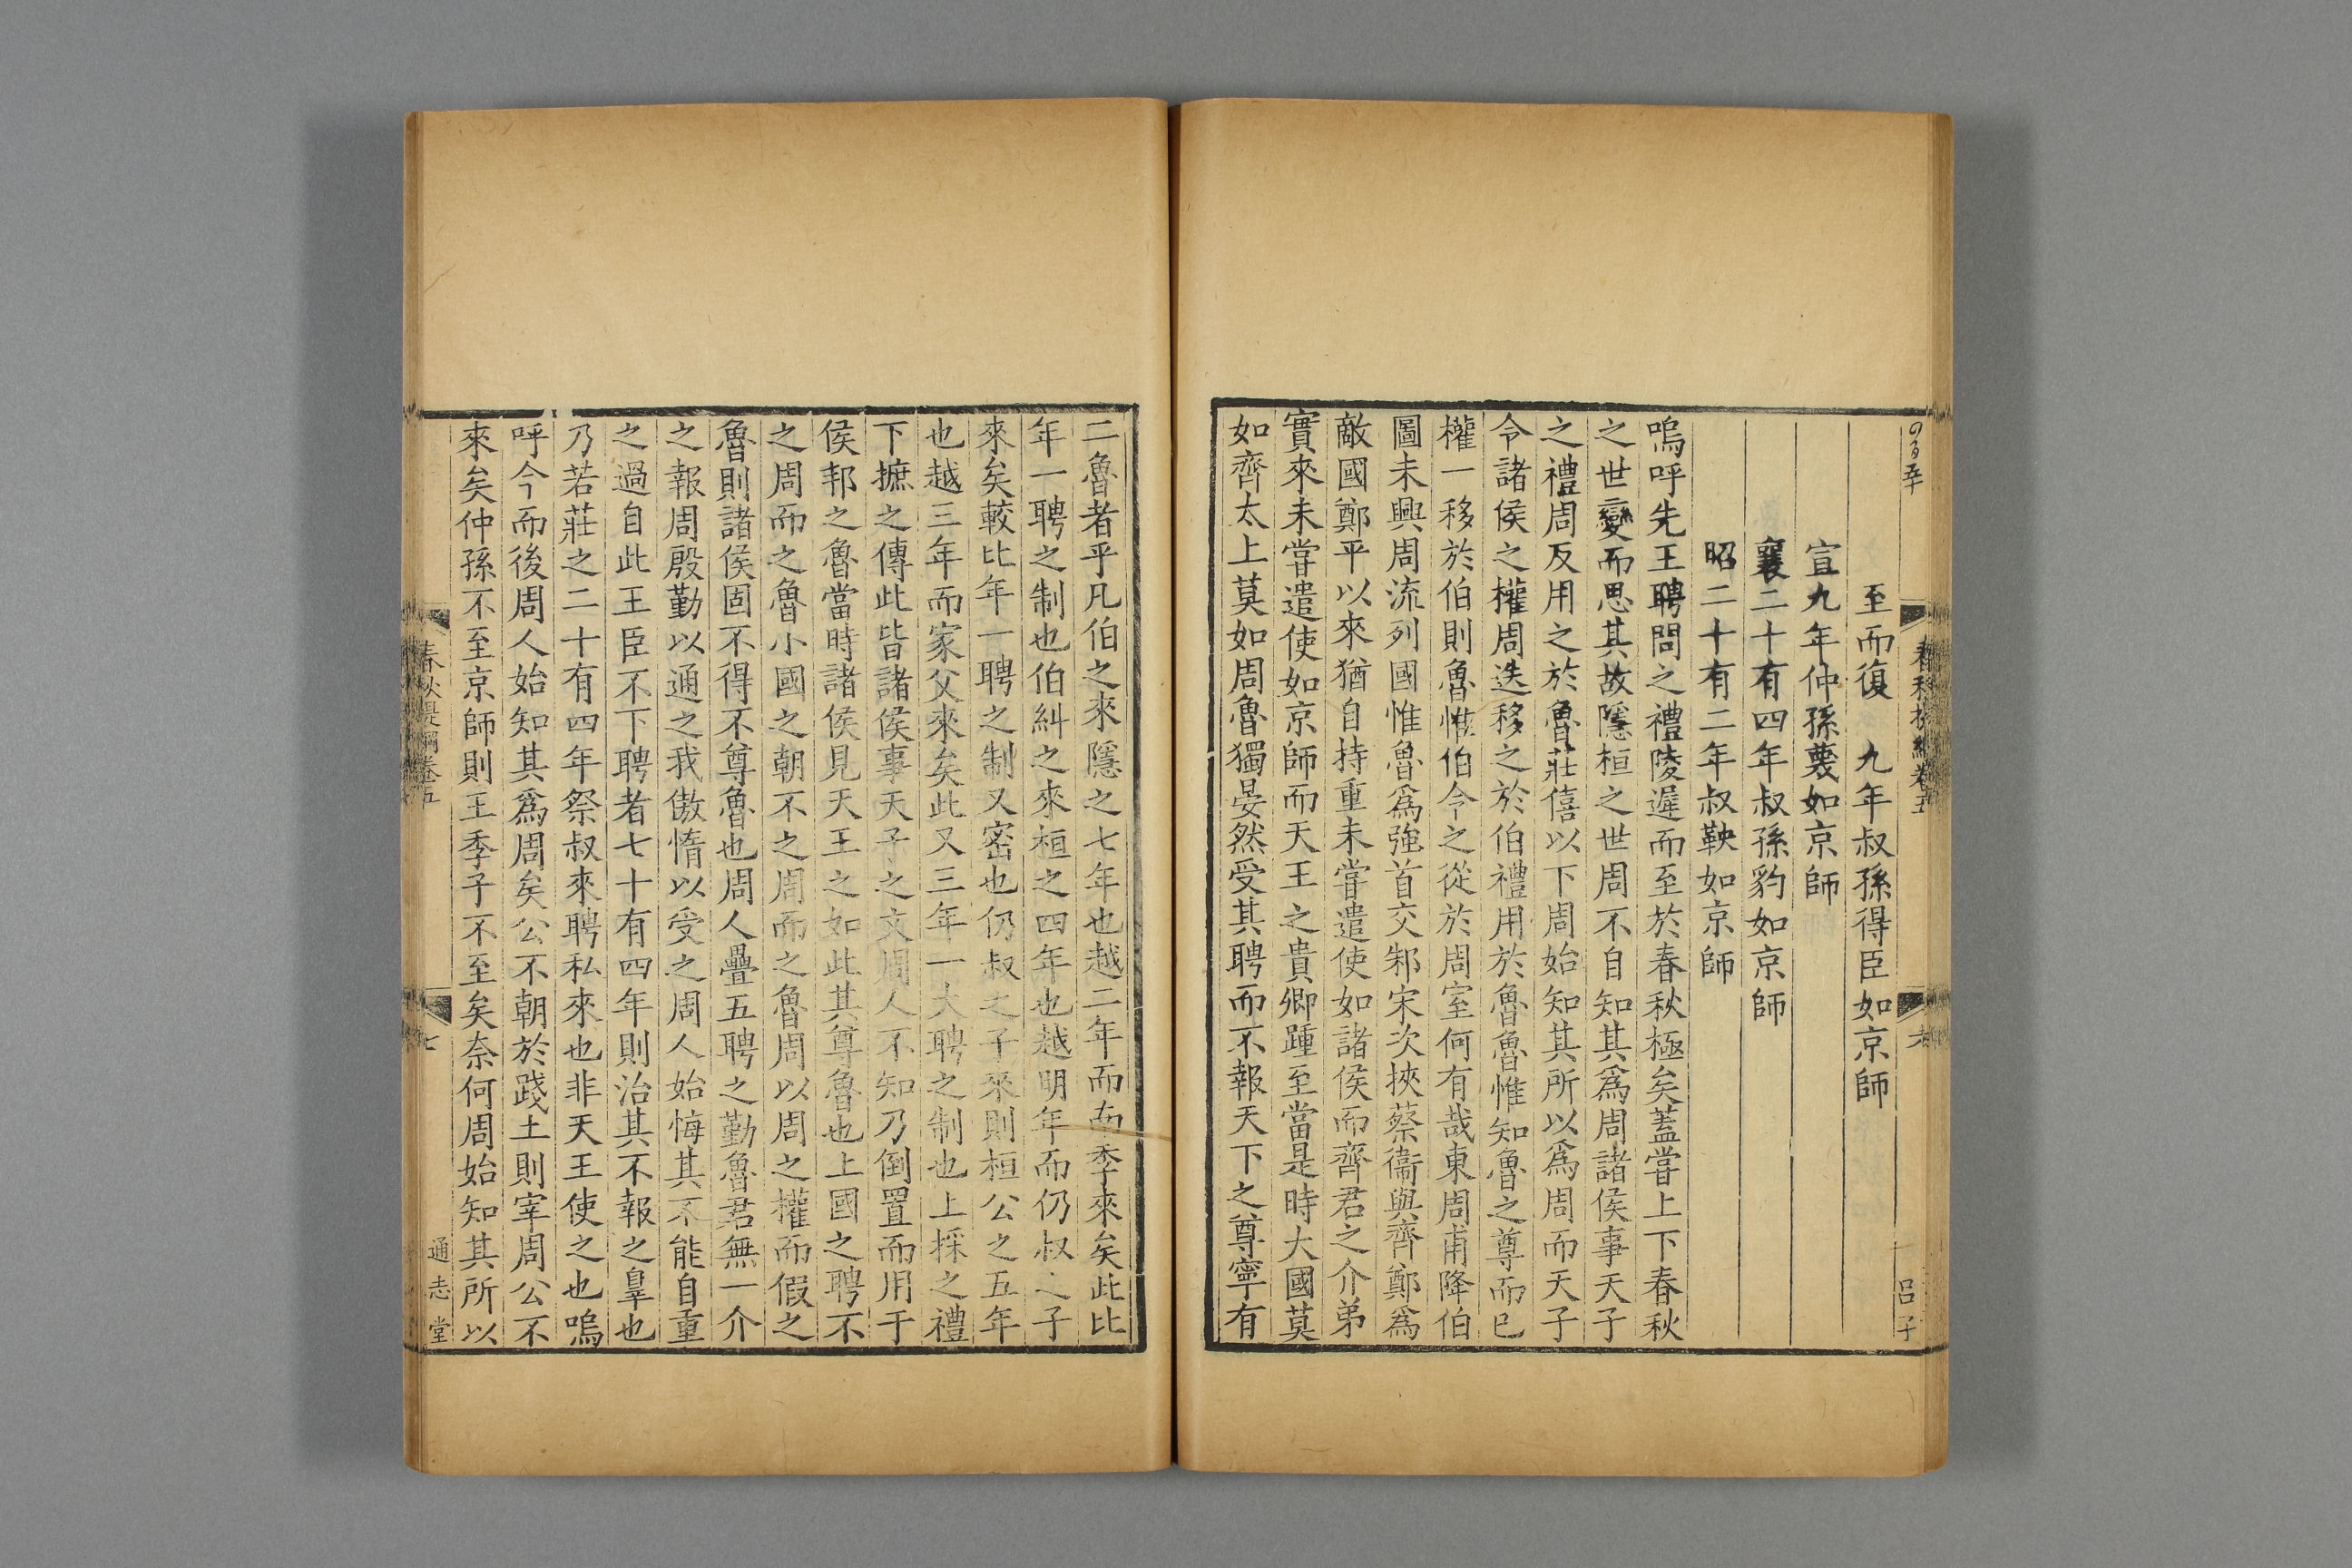 至而復 九年叔孫得臣如京師
宣九年仲孫蔑如京師
襄二十有四年叔孫豹如京師
昭二十有二年叔鞅如京師
嗚呼先王聘問之禮陵遲而至於春秋極矣蓋嘗上下春秋
之世變而思其故隱桓之世周不自知其爲周諸侯事天子
之禮周反用之於魯莊僖以下周始知其所以爲周而天子
令諸侯之權周迭移之於伯禮用於魯魯惟知魯之尊而已
權一移於伯則魯惟伯令之從於周室何有哉東周甫降伯
圖未興周流列國惟魯爲強首交邾宋次挾蔡衞與齊鄭爲
敵國鄭平以來猶自持重未嘗遣使如諸侯而齊君之介弟
實來未嘗遣使如京師而天王之貴卿踵至當是時大國莫
如齊太上莫如周魯獨晏然受其聘而不報天下之尊寧有
二魯者乎凡伯之來隱之七年也越二年而南季來矣此比
年一聘之制也伯糾之來桓之四年也越明年而仍叔之子
來矣較比年一聘之制又密也仍叔之子來則桓公之五年
也越三年而家父來矣此又三年一大聘之制也上採之禮
下摭之傳此皆諸侯事天子之文周人不知乃倒置而用于
侯邦之魯當時諸侯見天王之如此其尊魯也上國之聘不
之周而之魯小國之朝不之周而之魯周以周之權而假之
魯則諸侯固不得不尊魯也周人疊五聘之勤魯君無一介
之報周殷勤以通之我傲惰以受之周人始悔其不能自重
之過自此王臣不下聘者七十有四年則治其不報之辠也
乃若莊之二十有四年祭叔來聘私來也非天王使之也嗚
呼今而後周人始知其爲周矣公不朝於踐土則宰周公不
來矣仲孫不至京師則王季子不至矣奈何周始知其所以
春秋提綱卷五
七
通志堂